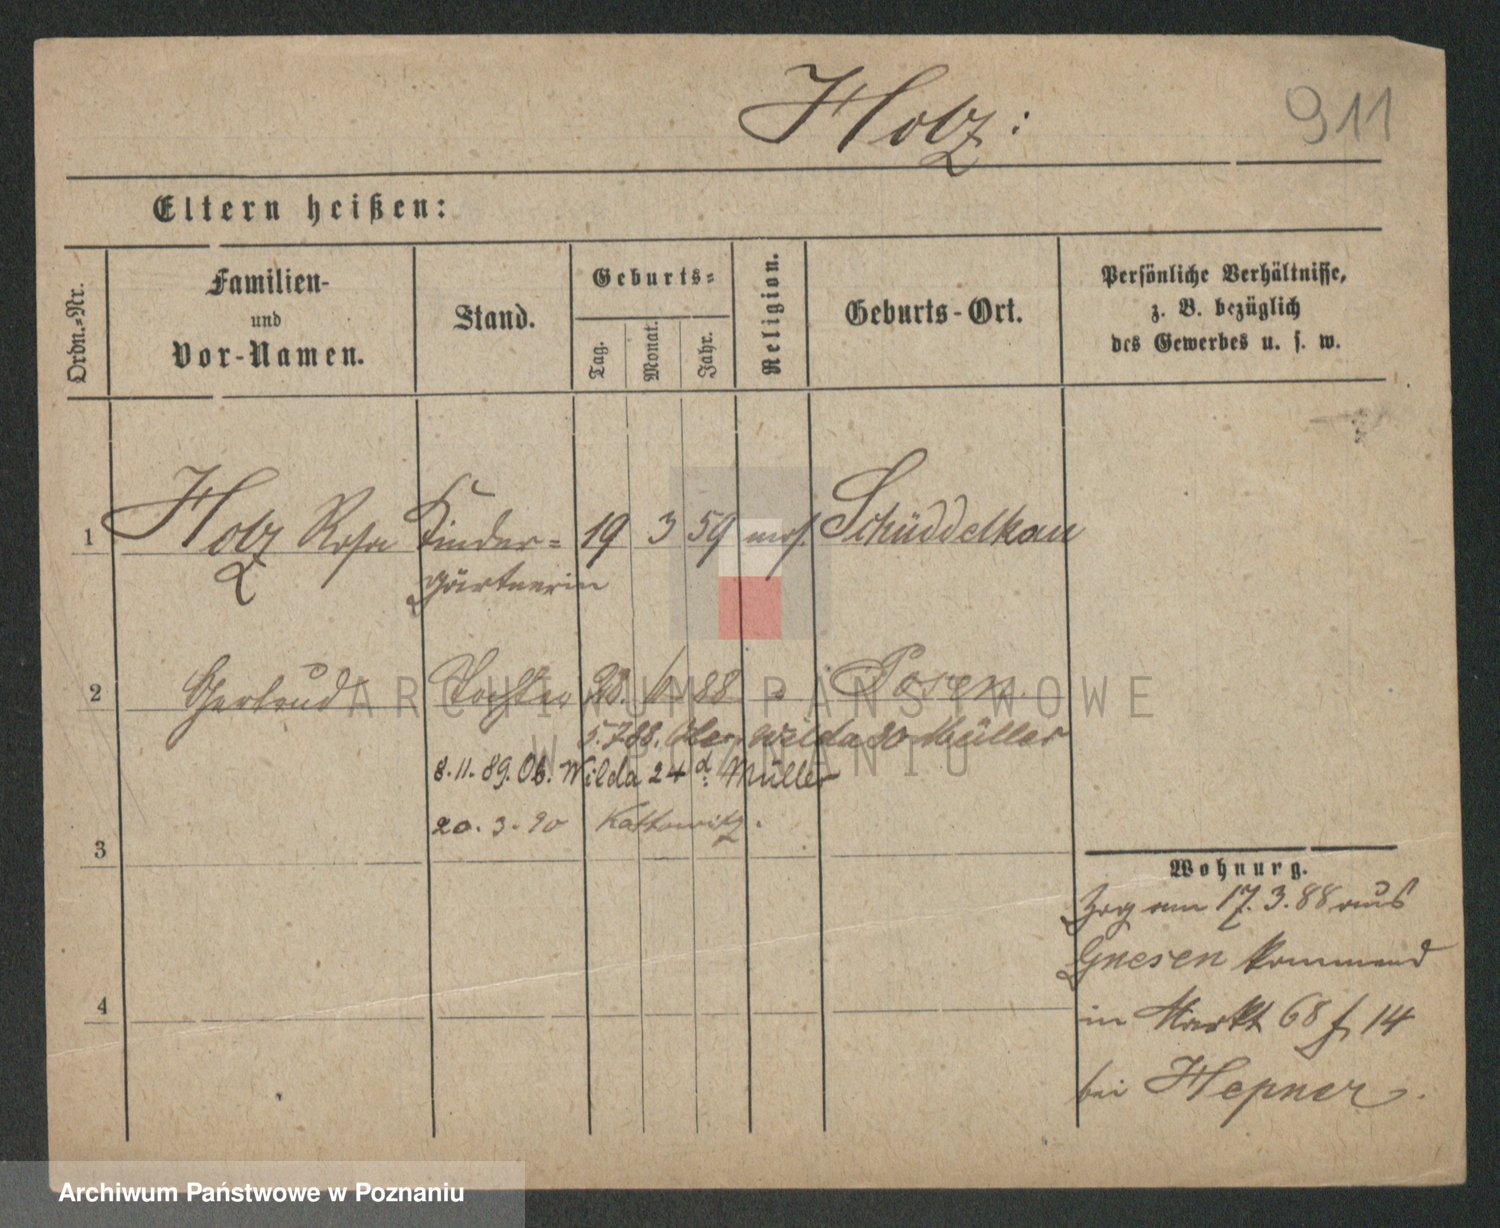 Holz:
911
Eltern heißen:
Ordn.-Nr.
Familien-
und
Vor-Namen.
Stand.
Geburts-
Tag.
Monat.
Jahr.
Religion.
Geburts-Ort.
Persönliche Verhältnisse,
z. B. bezüglich
des Gewerbes u. s. w.
1 Holz Rosa Kinder- 19 3 59 mos. Schüddelkau
gärtnerin
2 Gertrud Tochter 28. 6. 88 " Posen.
5.7 88. Ober Wilda 30 Müller
8.11.89. Ob. Wilda 24 d Müller
20.3.90 Kattowitz.
3
Wohnung.
Zog am 17.3.88 aus
Gnesen kommend
in Markt 68 f. 14
4
bei Hepner.
ARCHIWUM PAŃSTWOWE
W POZNANIU
Archiwum Państwowe w Poznaniu